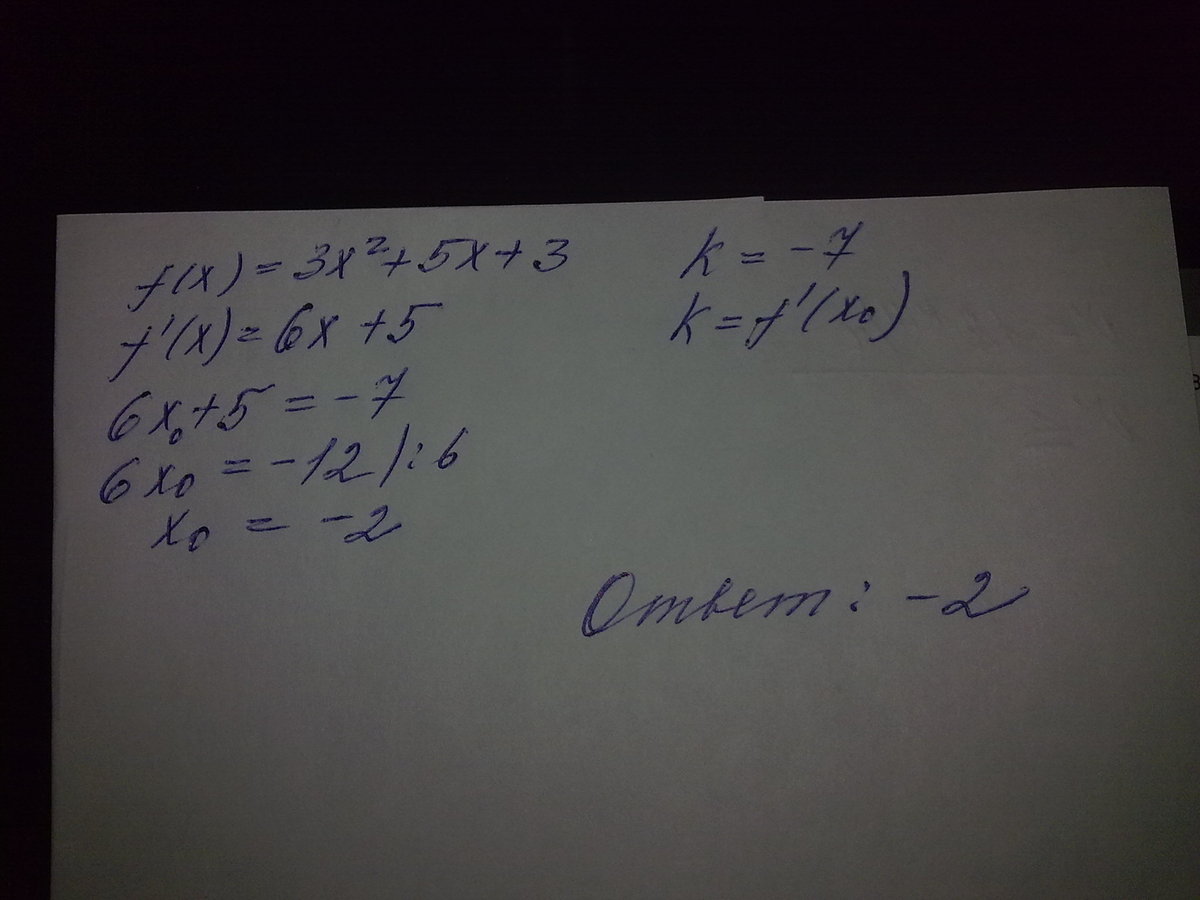 f(x) = 3x² + 5x + 3
f'(x) = 6x + 5
6x₀ + 5 = -7
6x₀ = -12 ) : 6
x₀ = -2
k = -7
k = f'(x₀)
Ответ: -2